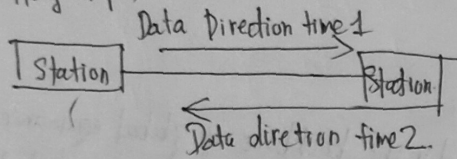 Data Direction time1
Station
Station
Data diretion time2.